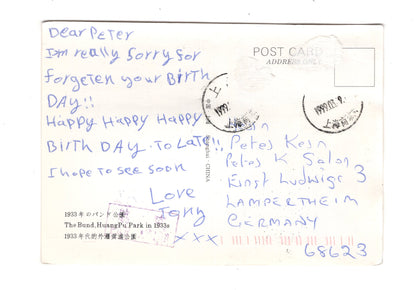 Dear Peter
I'm really sorry for
forgeten your Birth
DAY!!
Happy Happy Happy
Birth DAY To late!!
I hope to see soon
Love
Tony
xxx
1933年のバンド公園
The Bund, HuangPu Park in 1933s
1933年代的外灘黄浦公園
POST CARD
ADDRESS ONLY
上海
1999
1999.03.9
上海
CHINA
Peter Kern
Peters K Salon
Ernst Ludwigs 3
LAMPERTHEIM
GERMANY
68623